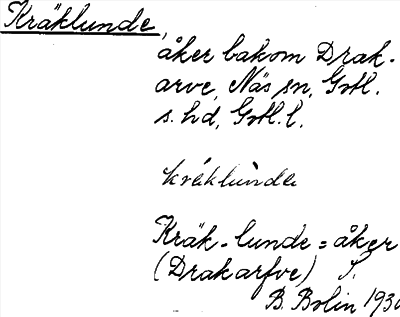 Kräklunde,
åker bakom Drak-
arve, Näs sn, Gotl.
s. hd, Gotl. l.
kräklunda
Kräk-lunde = åker
(Drakarfve) S.
B. Bolin 193